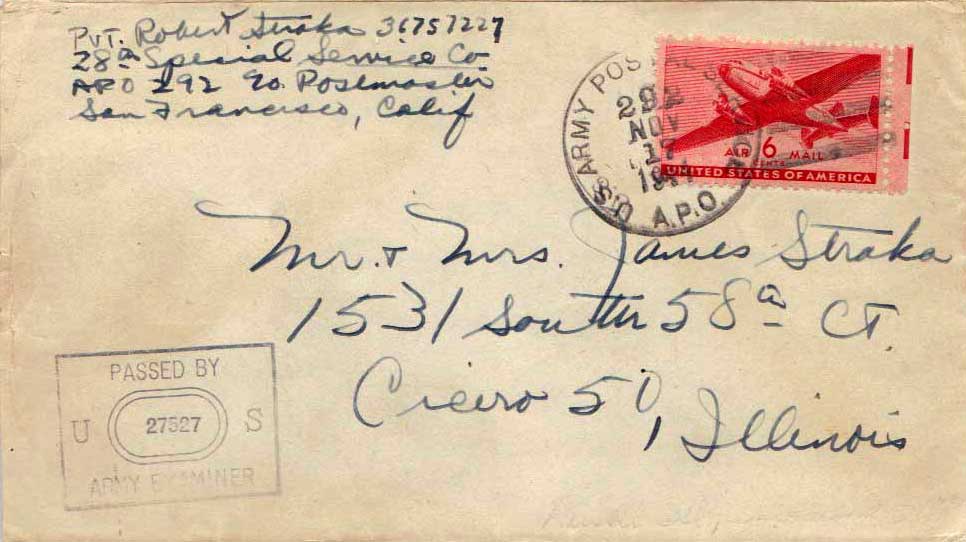 Pvt. Robert Straka 36757227
28th Special Service Co
APO 292 % Postmaster
San Francisco, Calif
U.S. ARMY POSTAL
A.P.O.
NOV
17
AIR 6 MAIL
CENTS
UNITED STATES OF AMERICA
Mr. + Mrs. James Straka
1531 South 58th CT.
Cicero 50, Illinois
PASSED BY
U 27527 S
ARMY EXAMINER